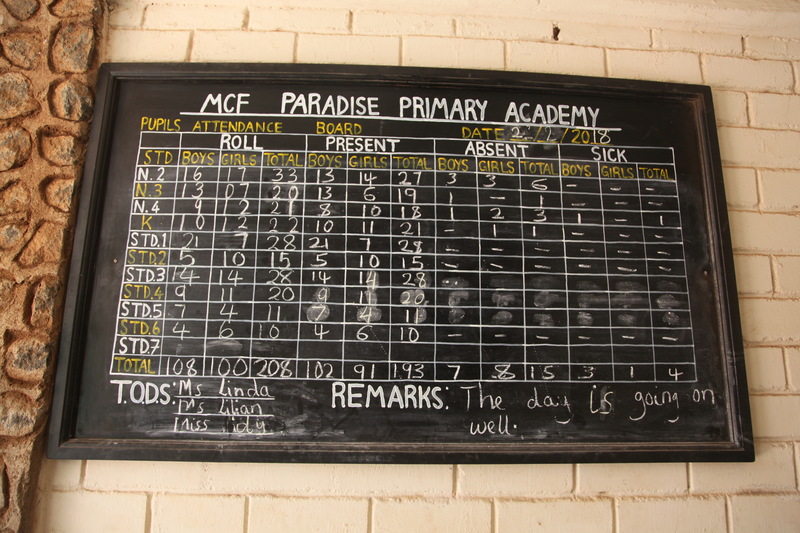 MCF PARADISE PRIMARY ACADEMY
PUPILS ATTENDANCE BOARD DATE 2018
ROLL PRESENT ABSENT SICK
STD BOYS GIRLS TOTAL BOYS GIRLS TOTAL BOYS GIRLS TOTAL BOYS GIRLS TOTAL
N.2 16 33 13 14 27 3 3 6 - - -
N.3 13 07 20 13 6 19 1 - 1 - - -
N.4 9 21 8 10 18 1 2 3 1 - 1
K 10 12 22 10 11 21 - 1 1 - - -
STD.1 21 7 28 21 7 28 - - - - - -
STD.2 5 10 15 5 10 15 - - - - - -
STD.3 14 14 28 14 14 28 - - - - - -
STD.4 9 11 20 9 11 20 - - - - - -
STD.5 7 4 11 7 4 11 - - - - - -
STD.6 4 6 10 4 6 10 - - - - - -
STD.7
TOTAL 108 100 208 102 91 193 7 8 15 3 1 4
T.O.D.S: Ms Linda REMARKS: The day is going on
Ms Lilian well.
Miss